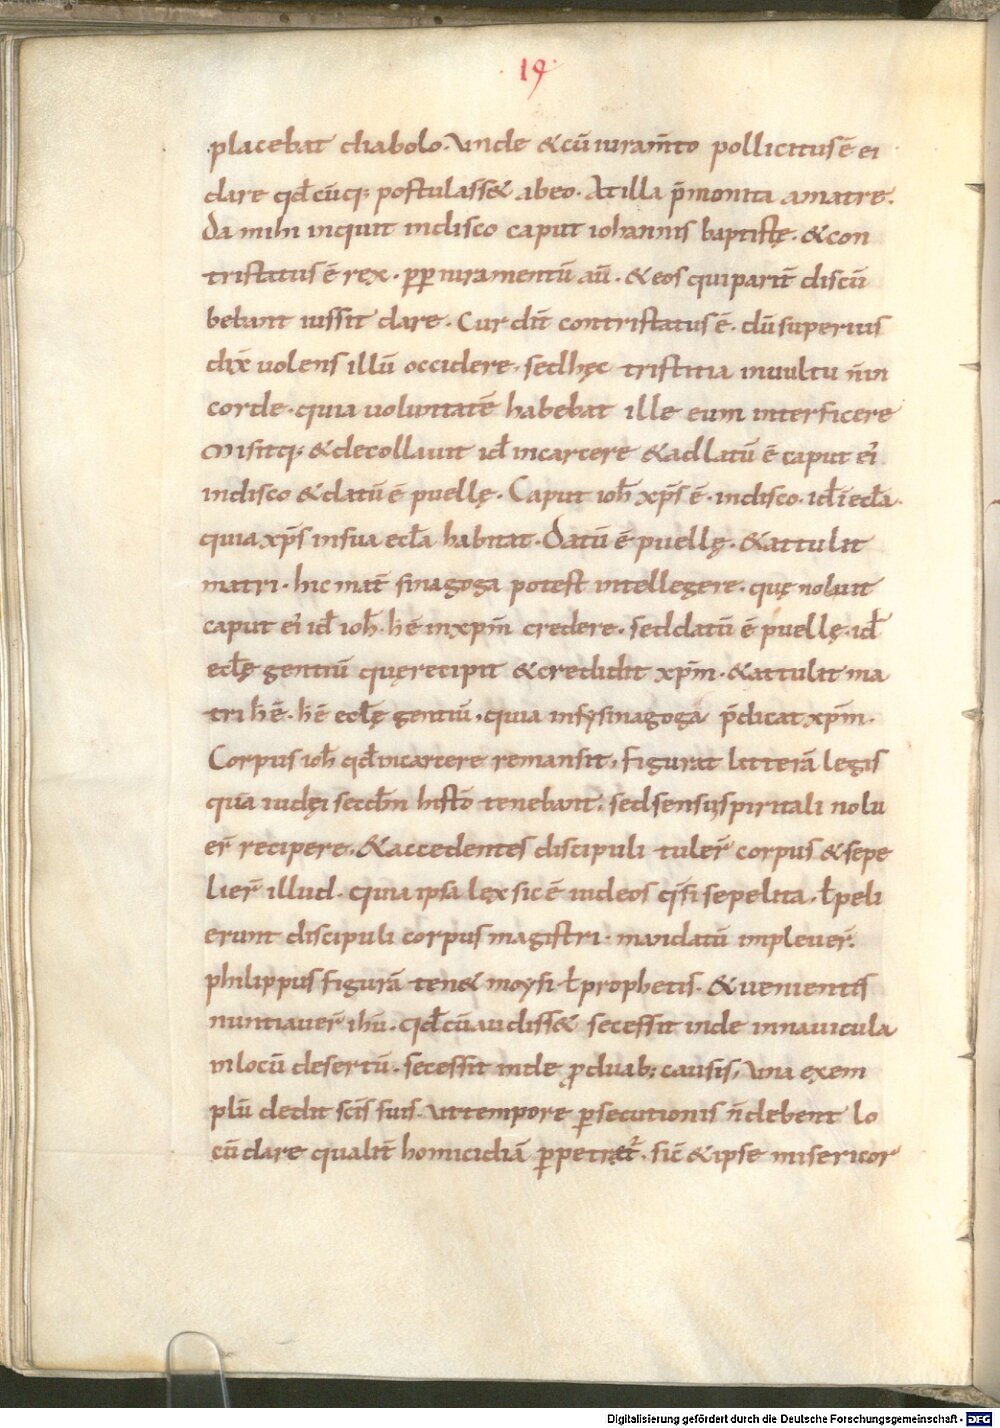 19
placebat diabolo. Unde &cū iuram̄to pollicitus ē ei
dare qd̄cūq; postulass& abeo. Atilla p̄monita amatre.
Da mihi inquit indisco caput iohannis baptistę. &con
tristatus ē rex. ꝓp iuramentū aū. &eos quiparit̄ discū
bebant iussit dare. Cur dn̄t contristatus ē. dū superius
dix̄ uolens illū occidere. sedhęc tristitia inuultu n̄in
corde. quia uoluntatē habebat ille eum interficere
Misitq; &decollauit id̄ incarcere &adlatū ē caput ei
indisco &datū ē puellę. Caput ioh̄ xp̄s ē. indisco. id̄ ī eccła.
quia xp̄s insua eccła habitat. Datū ē puellę. &attulit
matri. hic mat̄ sinagoga potest intellegere. quę noluit
caput ei id̄ ioh̄. h̄ē inxp̄m̄ credere. seddatū ē puellę. id̄
eccłę gentiū quęrecipit &credidit xp̄m. &attulit ma
tri h̄ē. h̄ē eccłę gentiū, quia infysinagoga p̄dicat xp̄m.
Corpus ioh̄ qd̄incarcere remansit, figurat litterā legis
quā iudęi secdm̄ histō tenebant. sedsensuspiritali nolu
er̄ recipere. &accedentes discipuli tuler̄ corpus &sepe
lier̄ illud. quia ipsa lex sic ē iudeos qsi sepelita. ł peli
erunt discipuli corpus magistri. mandatū impleuer̄.
philippus figurā ten& moysi. ł prophetis. &uenientes
nuntiauer̄ ihū. qd̄cū audiss& secessit inde innauicula
inlocū desertū. secessit inde ꝓduab; causis, una exem
plū dedit sc̄is suis. ut tempore ꝑsecutionis n̄debent lo
cū dare qualit̄ homicidiā ꝑpetret̄. sic̄ &ipse misericor
Digitalisierung gefördert durch die Deutsche Forschungsgemeinschaft - DFG